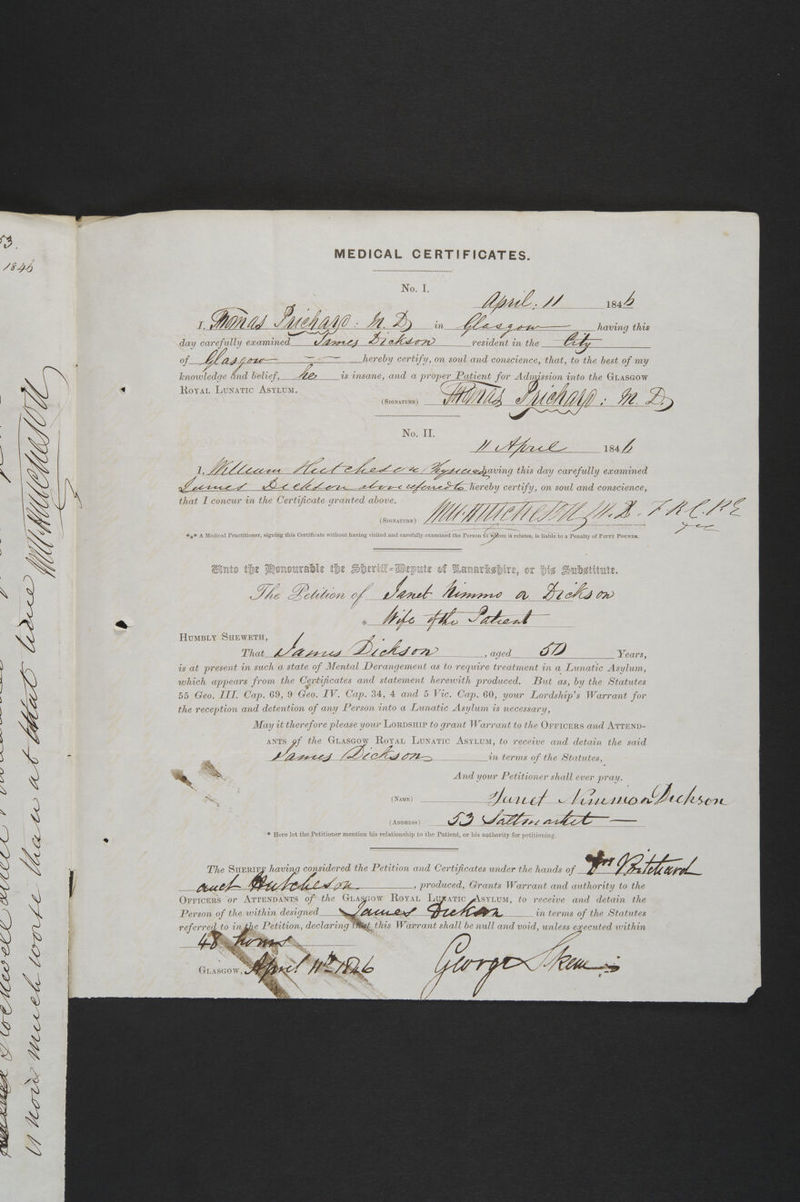 53.
1846
MEDICAL CERTIFICATES.
No. I.
April. 11 1846
I, Thomas Prichard: M. D. in Glasgow having this
day carefully examined James Dickson resident in the City
of Glasgow hereby certify, on soul and conscience, that, to the best of my
knowledge and belief, he is insane, and a proper Patient for Admission into the GLASGOW
ROYAL LUNATIC ASYLUM.
(SIGNATURE) Thomas Prichard: M. D.
No. II.
11 April 1846
I, William Hutcheson having this day carefully examined
James Dickson above referred to hereby certify, on soul and conscience,
that I concur in the Certificate granted above.
(SIGNATURE) Wm. Hutcheson M. D. F. R. C. P. E
*** A Medical Practitioner, signing this Certificate without having visited and carefully examined the Person to whom it relates, is liable to a Penalty of FIFTY POUNDS.
Unto the Honourable the Sheriff-Depute of Lanarkshire, or his Substitute.
The Petition of Janet Nimmo or Dickson
* Wife of the Patient
HUMBLY SHEWETH,
That James Dickson, aged 50 Years,
is at present in such a state of Mental Derangement as to require treatment in a Lunatic Asylum,
which appears from the Certificates and statement herewith produced. But as, by the Statutes
55 Geo. III. Cap. 69, 9 Geo. IV. Cap. 34, 4 and 5 Vic. Cap. 60, your Lordship's Warrant for
the reception and detention of any Person into a Lunatic Asylum is necessary,
May it therefore please your LORDSHIP to grant Warrant to the OFFICERS and ATTEND-
ANTS of the GLASGOW ROYAL LUNATIC ASYLUM, to receive and detain the said
James Dickson in terms of the Statutes,
And your Petitioner shall ever pray.
(NAME) Janet Nimmo or Dickson
(ADDRESS) 53 Saltmarket
* Here let the Petitioner mention his relationship to the Patient, or his authority for petitioning.
The SHERIFF having considered the Petition and Certificates under the hands of Drs Pritchard
and Hutcheson, produced, Grants Warrant and authority to the
OFFICERS or ATTENDANTS of the GLASGOW ROYAL LUNATIC ASYLUM, to receive and detain the
Person of the within designed James Dickson in terms of the Statutes
referred to in the Petition, declaring that this Warrant shall be null and void, unless executed within
48 hours
GLASGOW, April 11th 1846 George Skene
Wm. Hutcheson
is now much worse than at that time